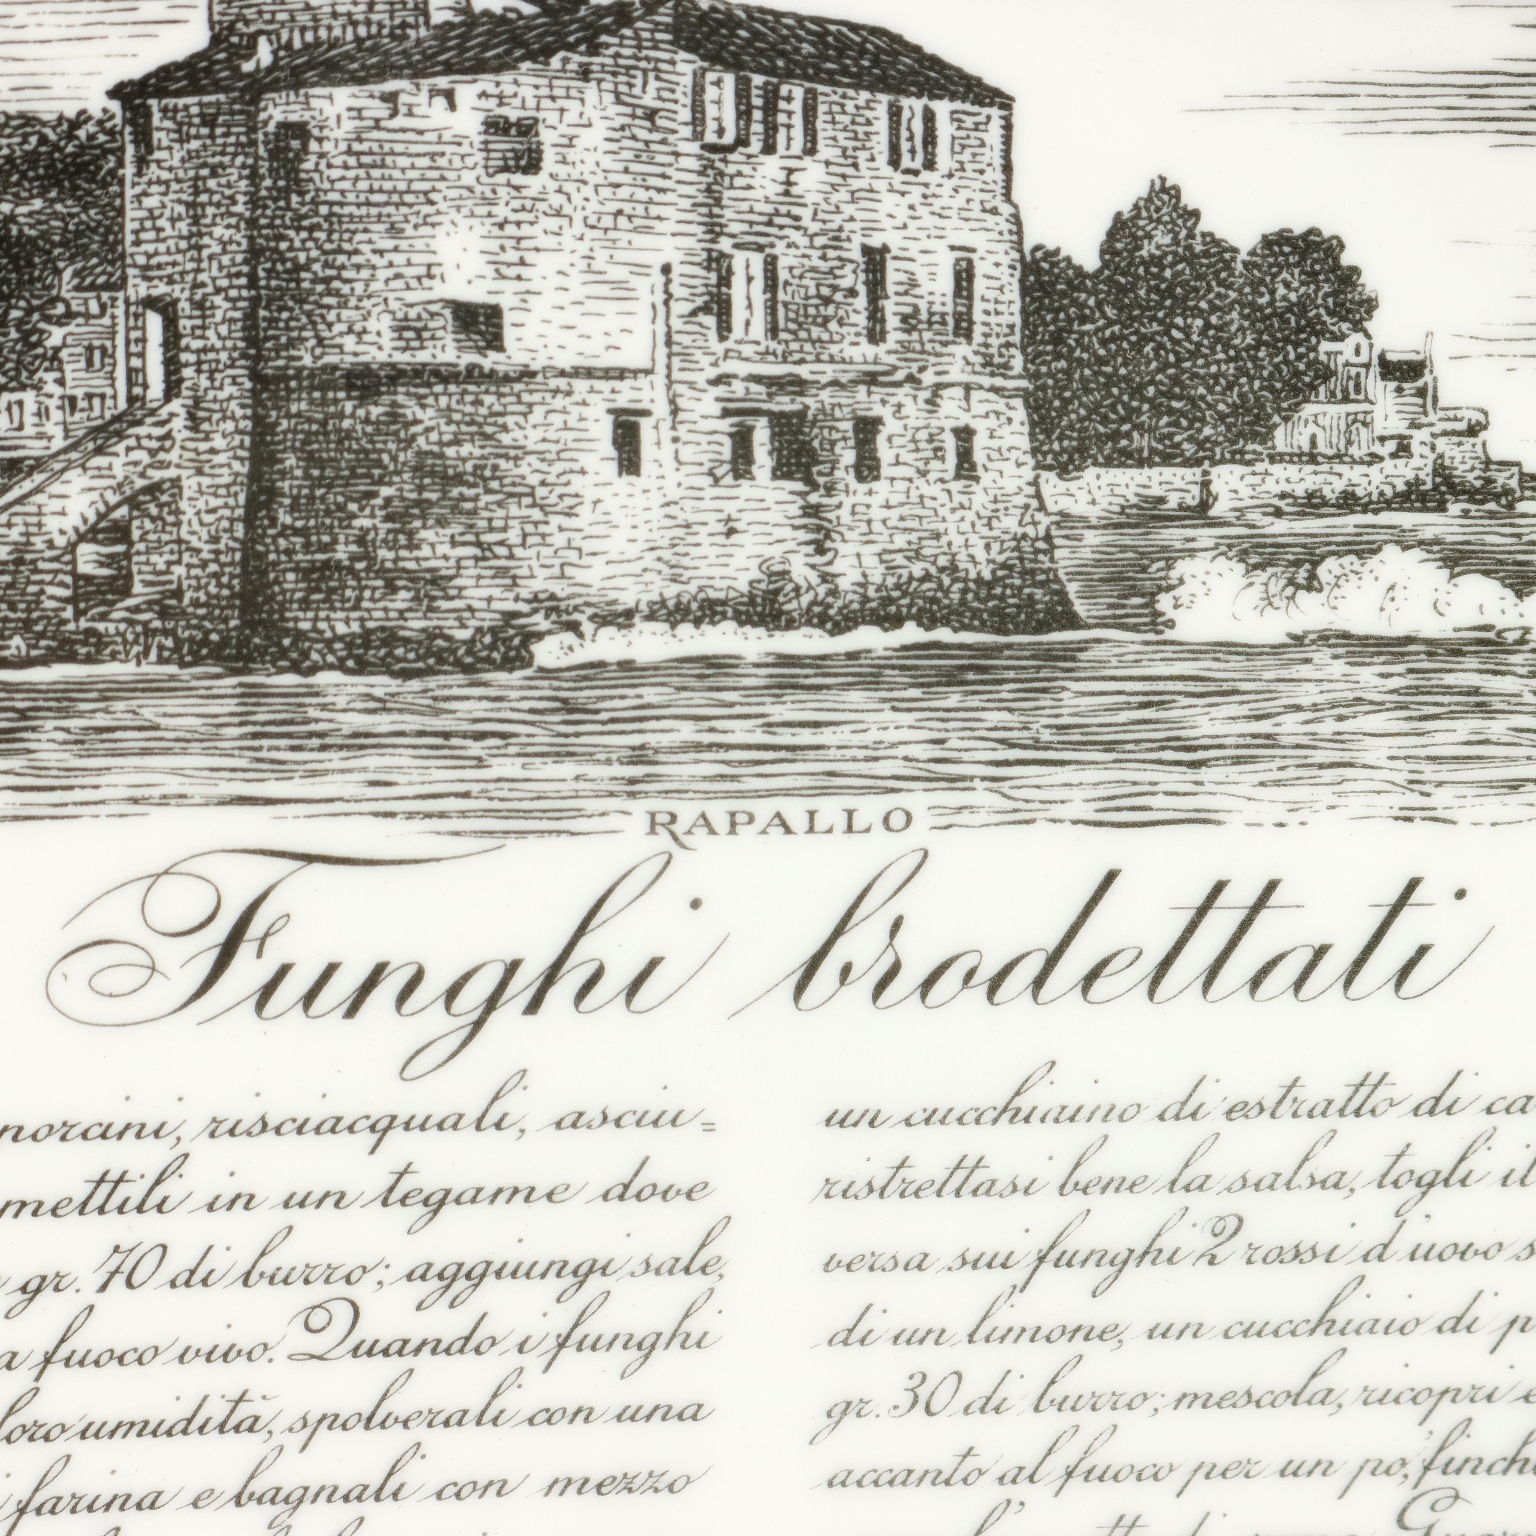 RAPALLO
Funghi brodettati
norcini, risciacquali, asciu=
mettili in un tegame dove
gr. 70 di burro; aggiungi sale,
a fuoco vivo. Quando i funghi
loro umidità, spolverali con una
farina e bagnali con mezzo
un cucchiaino di estratto di ca
ristrettasi bene la salsa, togli il
versa sui funghi 2 rossi d'uovo s
di un limone, un cucchiaio di p
gr. 30 di burro; mescola, ricopri e
accanto al fuoco per un po', finch